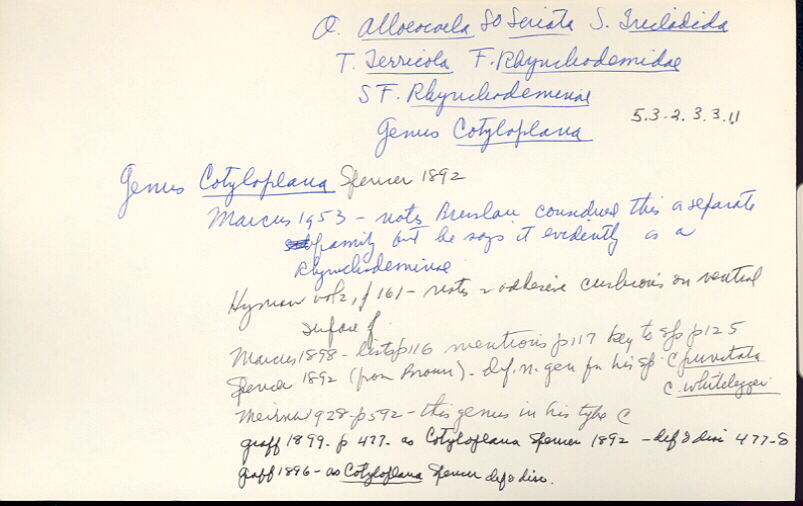 O. Alloeocoela SO Seriata S. Tricladida
T. Terricola F. Rhynchodemidae
SF. Rhynchodeminae
Genus Cotyloplana
5.3-2.3.3.11
Genus Cotyloplana Spencer 1892
Marcus 1953 - notes Breslau considered this a separate
family but he says it evidently is a
Rhynchodeminae
Hyman vol 2, p 161 - notes 2 adhesive cushions on ventral
surface of
Marcus 1898 - lists p 116 mentions p 117 key to sp p 125
Spencer 1892 (from Brown). def. n. gen for his sp. C punctata
C. whiteleggei
Meixner 1928 - p 592 - this genus in his type C
graff 1899. p 477. as Cotyloplana Spencer 1892 - def & disc 477-8
graff 1896 - as Cotyloplana Spencer def & disc.